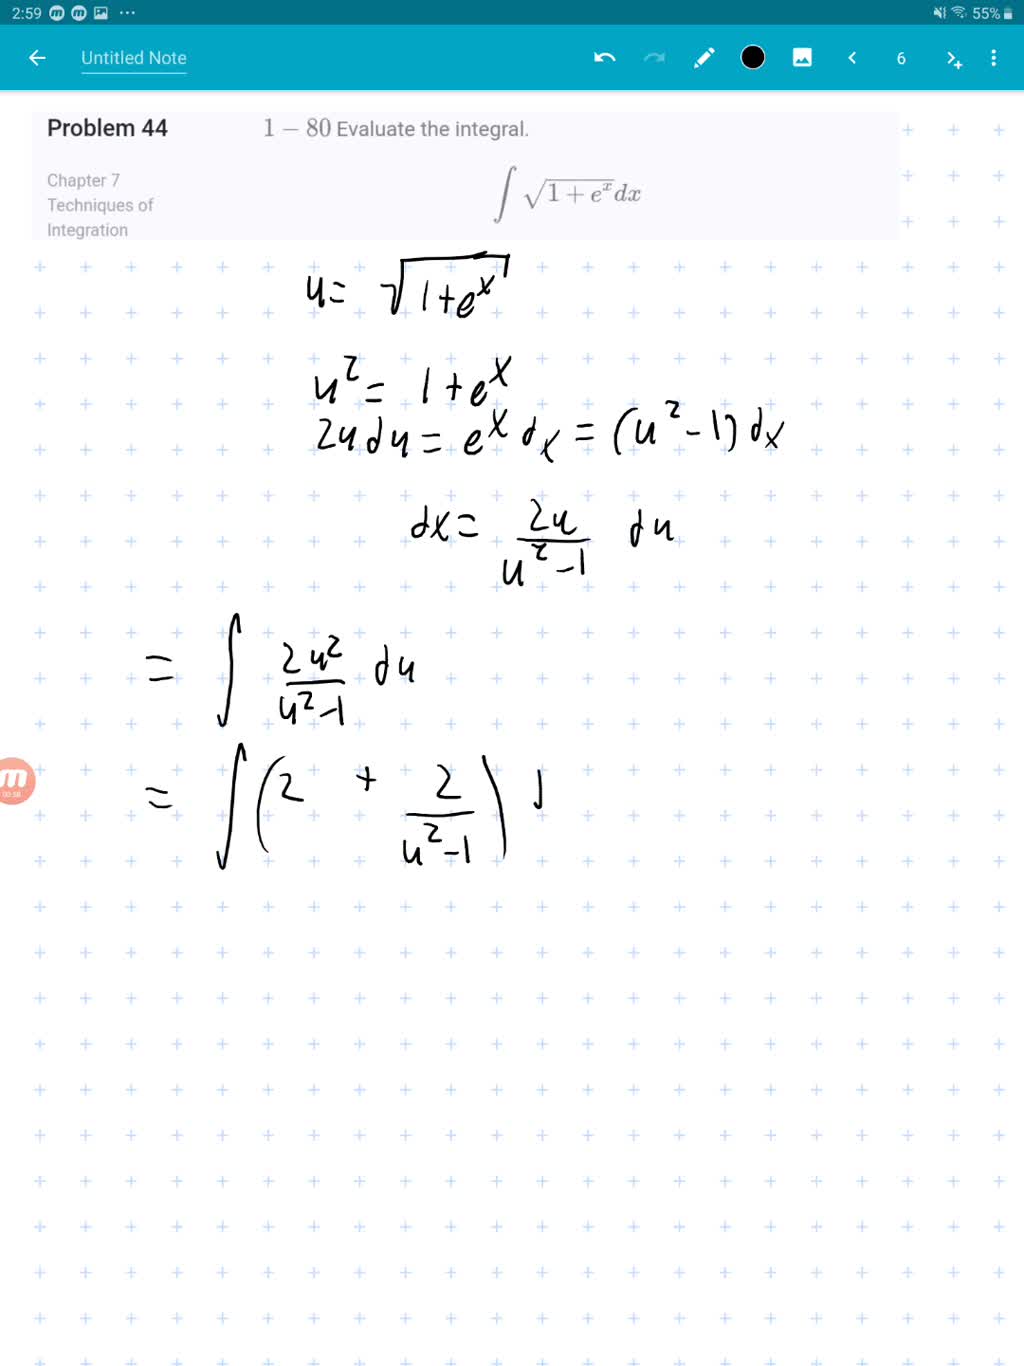 2:59 55%
Untitled Note 6
Problem 44 1 – 80 Evaluate the integral.
Chapter 7
Techniques of
Integration
∫ √(1 + e^x) dx
u = √(1+e^x)
u² = 1 + e^x
2u du = e^x dx = (u² - 1) dx
dx = 2u/(u² - 1) du
= ∫ 2u²/(u² - 1) du
= ∫ (2 + 2/(u² - 1))
m